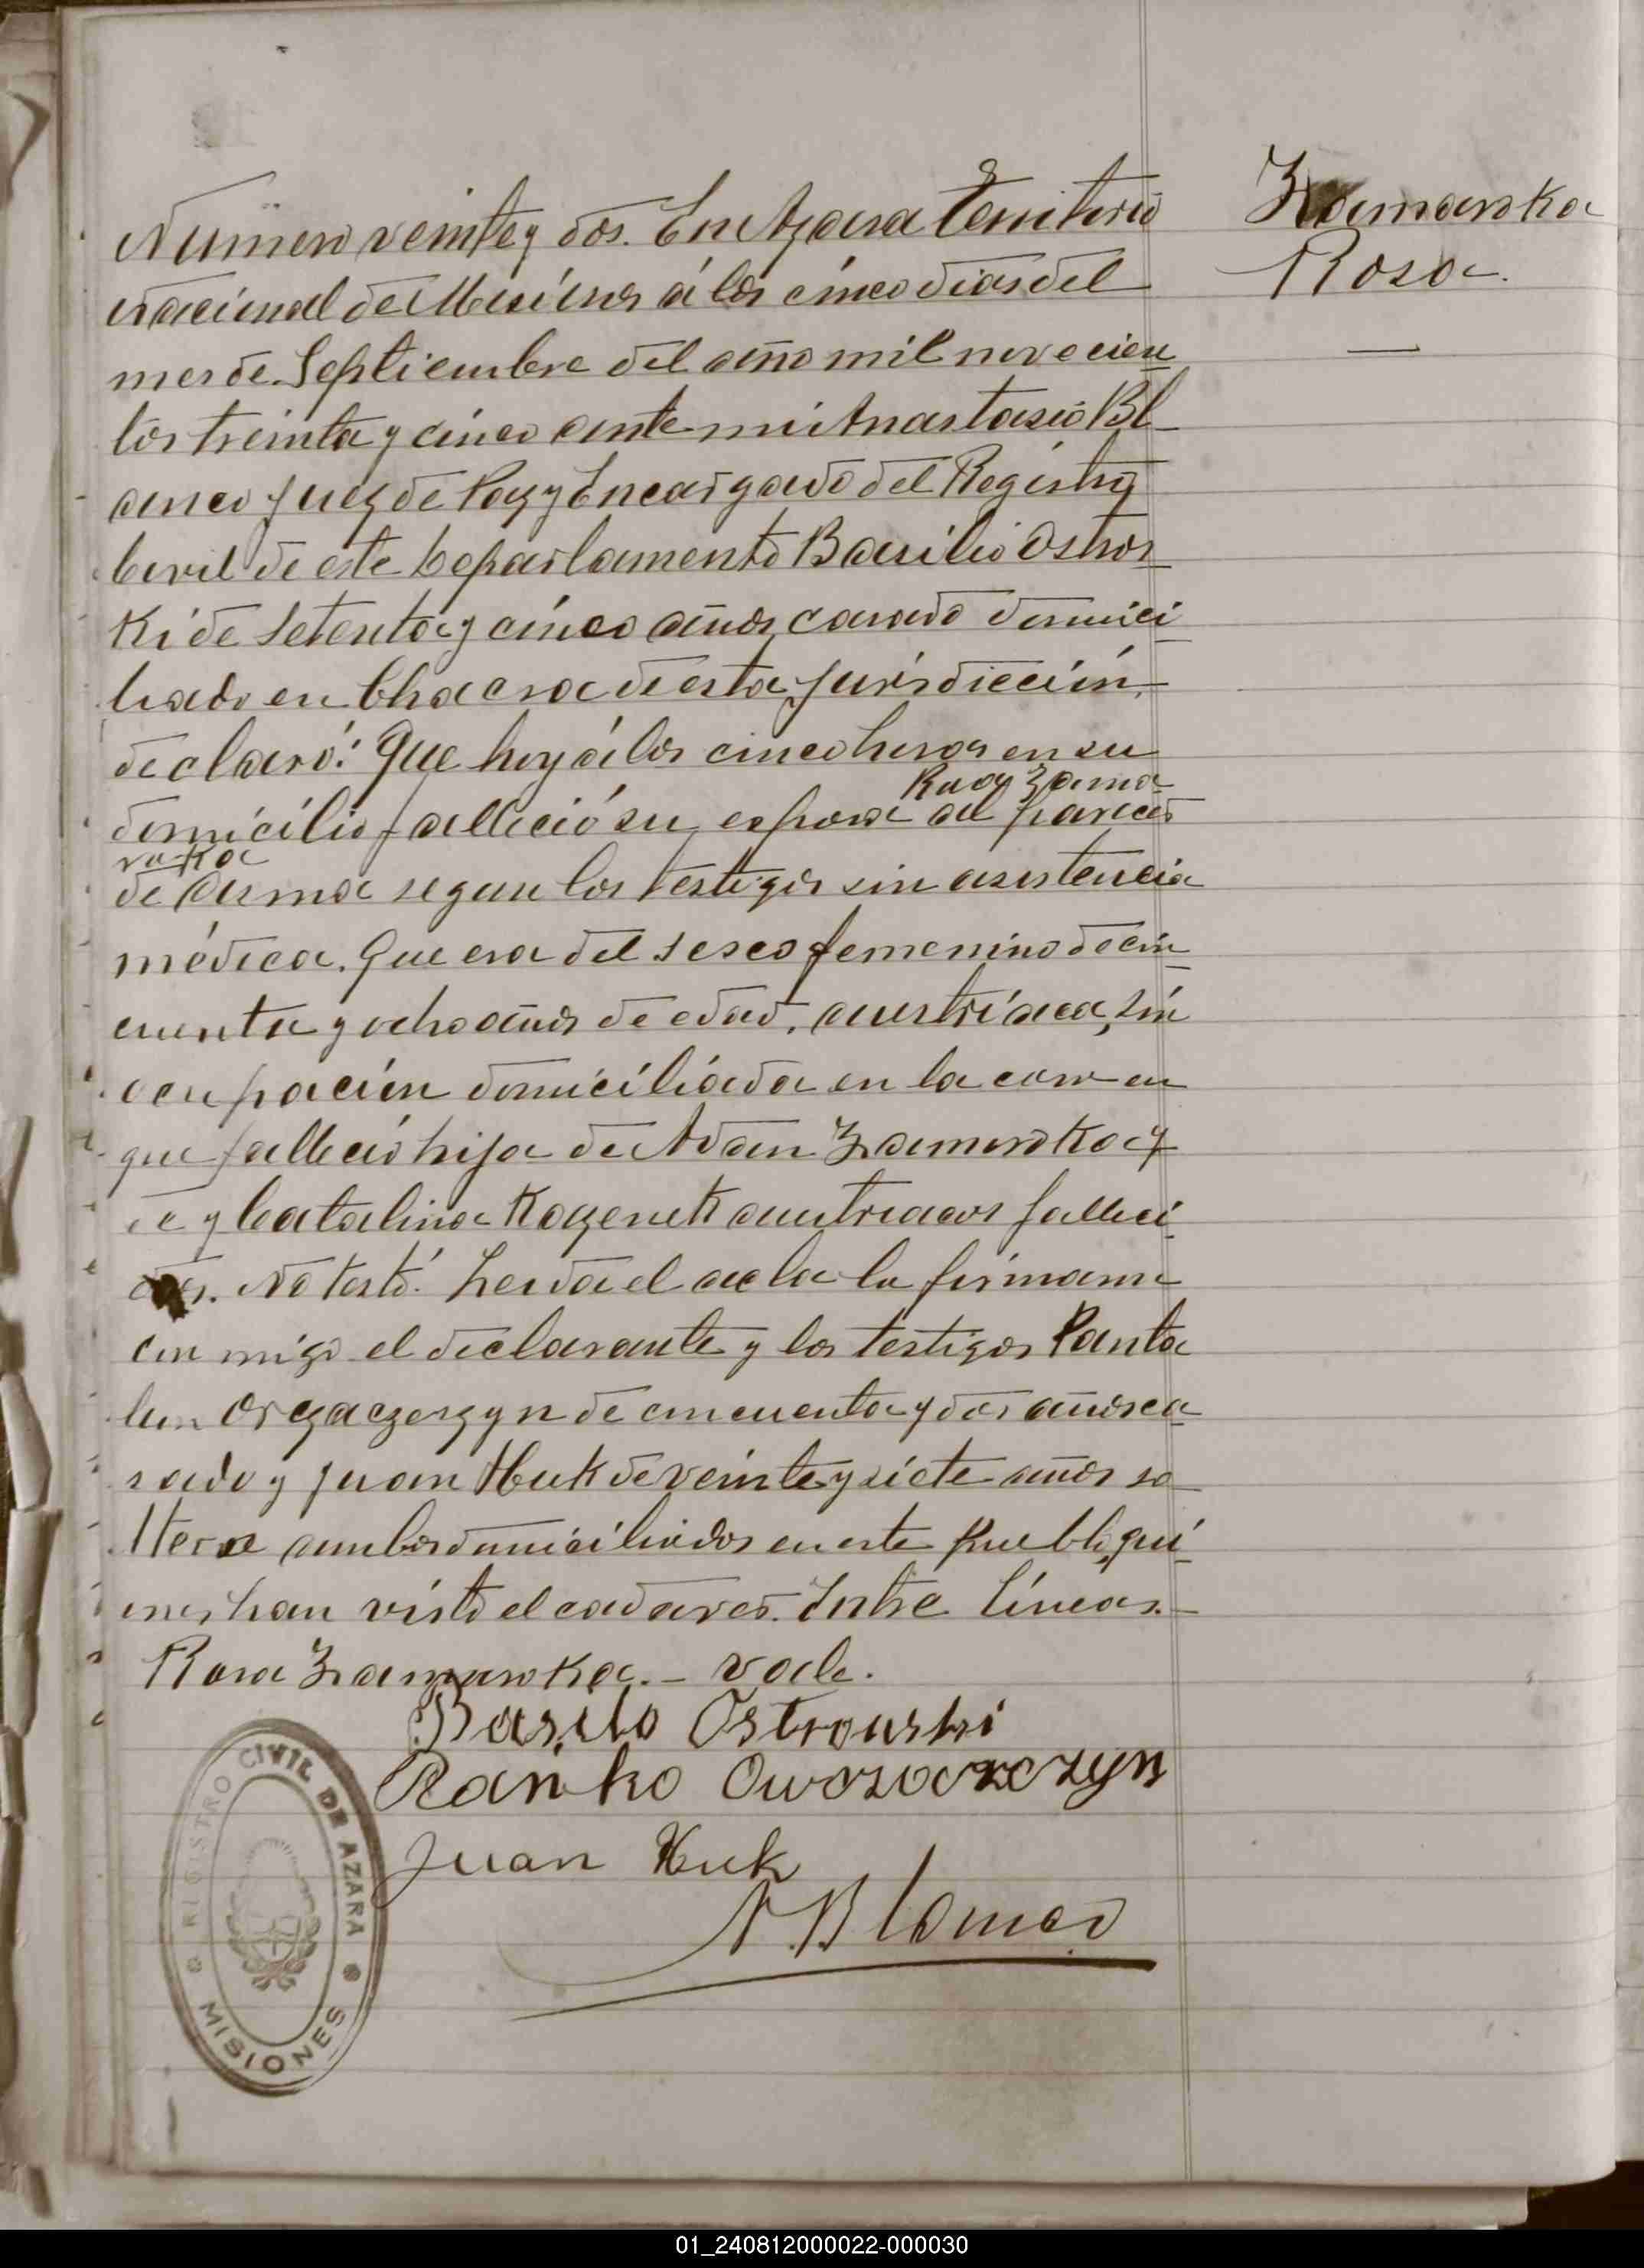 Zamaroska
Rosa.
Numero veinte y dos. En Azara Territorio
nacional de Misiones á los cinco dias del
mes de Septiembre del año mil novecien
tos treinta y cinco ante mi Anastasio Bl
anco Juez de Paz y Encargado del Registro
Cevil de este Departamento Basilio Ostros
ki de Setenta y cinco años, casado domici
liado en Chacra de esta jurisdicción,
declaró: Que hoy á las cinco horas en su
Rosa Zama
domicilio falleció su esposa al parecer
roska
de asma segun los testigos sin asistencia
médica. Que era del sexo femenino de cin
cuenta y ocho años de edad, austríaca, sin
ocupación domiciliada en la casa en
que falleció hija de Adan Zamoroska y
de y Catalina Kozenek austriacos falleci
dos. No testó. Leida el acta la firmaron
con migo el declarante y los testigos Panta
leon Orzaczerzyn de cincuenta y dos años ca
sado y Juan Huk de veinte y siete años so
ltero ambos domiciliados en este Pueblo, qui
enes han visto el cadaver. Entre líneas.
Rosa Zamaroska. - vale.
Basilo Ostrouski
Pańko Owozoczczyn
Juan Huk
A. Blanco
REGISTRO CIVIL DE AZARA
MISIONES
01_240812000022-000030